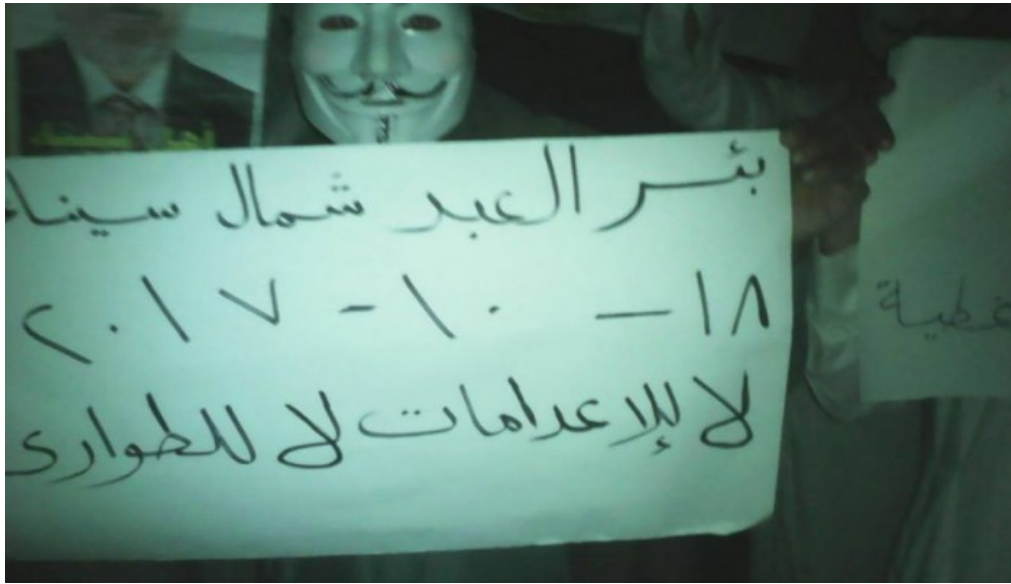 بئر العبد شمال سيناء
١٨ - ١٠ - ٢٠١٧
لا للإعدامات لا للطوارى